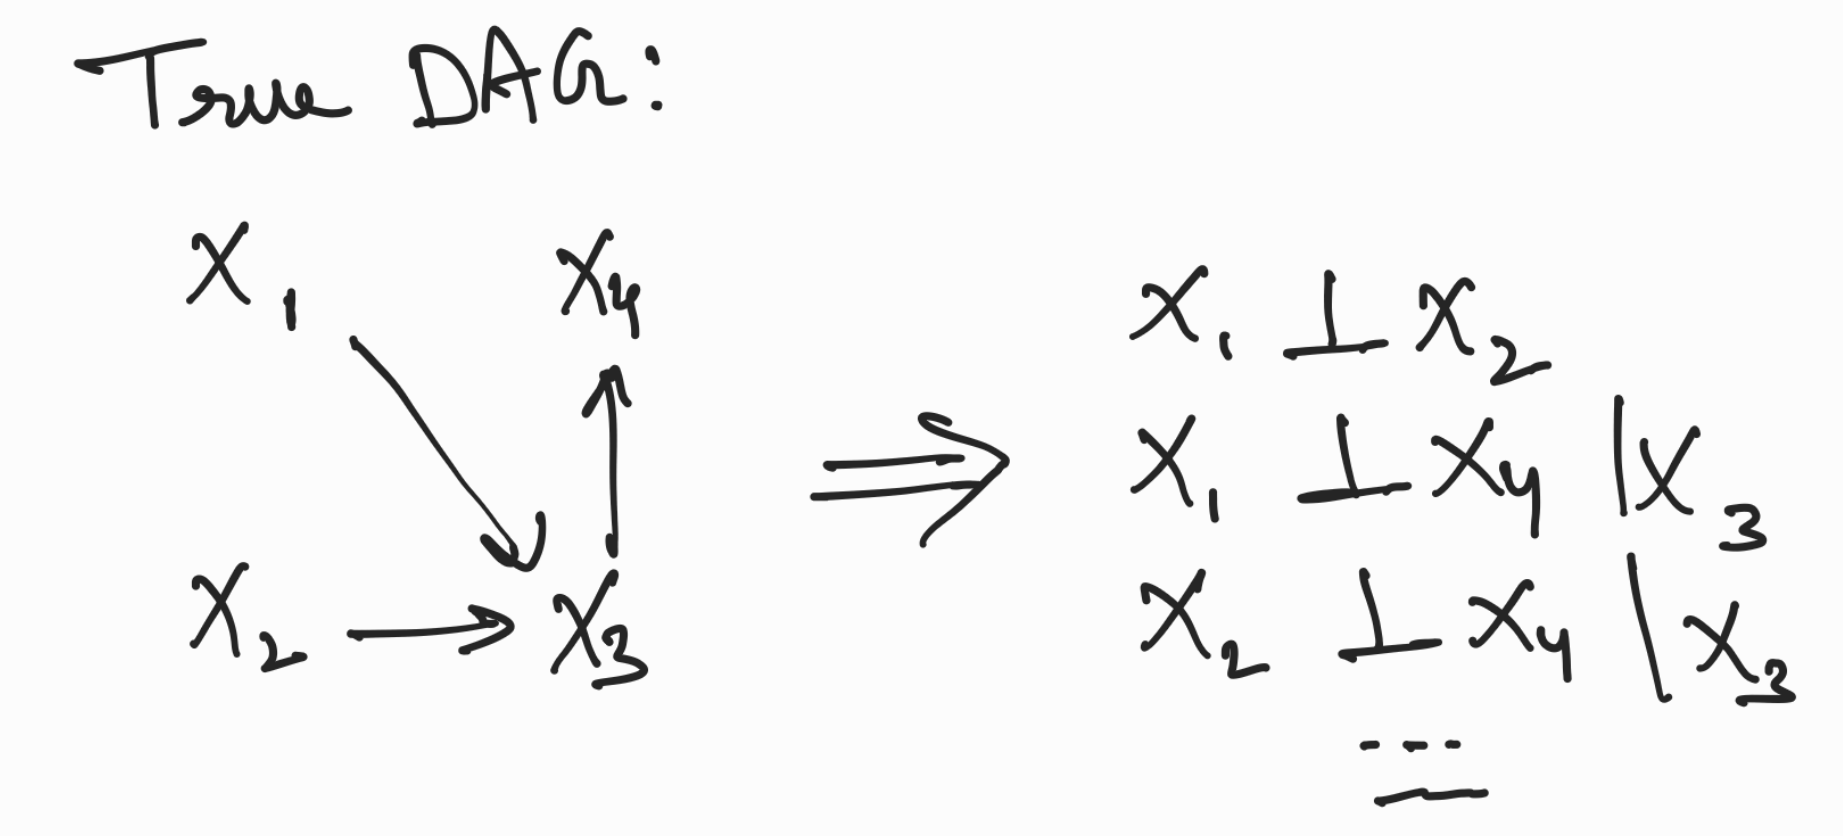 True DAG:
X₁ X₄
X₂ → X₃
⇒
X₁ ⊥ X₂
X₁ ⊥ X₄ | X₃
X₂ ⊥ X₄ | X₃
---